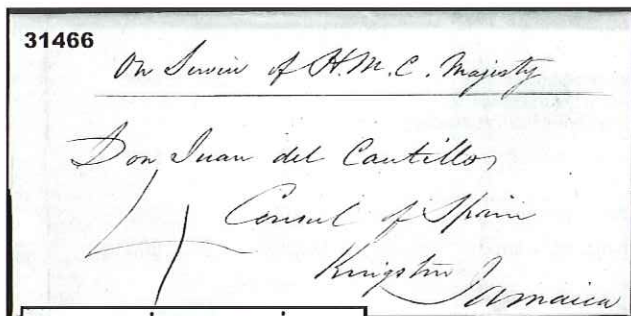 31466
On Service of H.M.C. Majesty
Don Juan del Castillo
Consul of Spain
Kingston
Jamaica